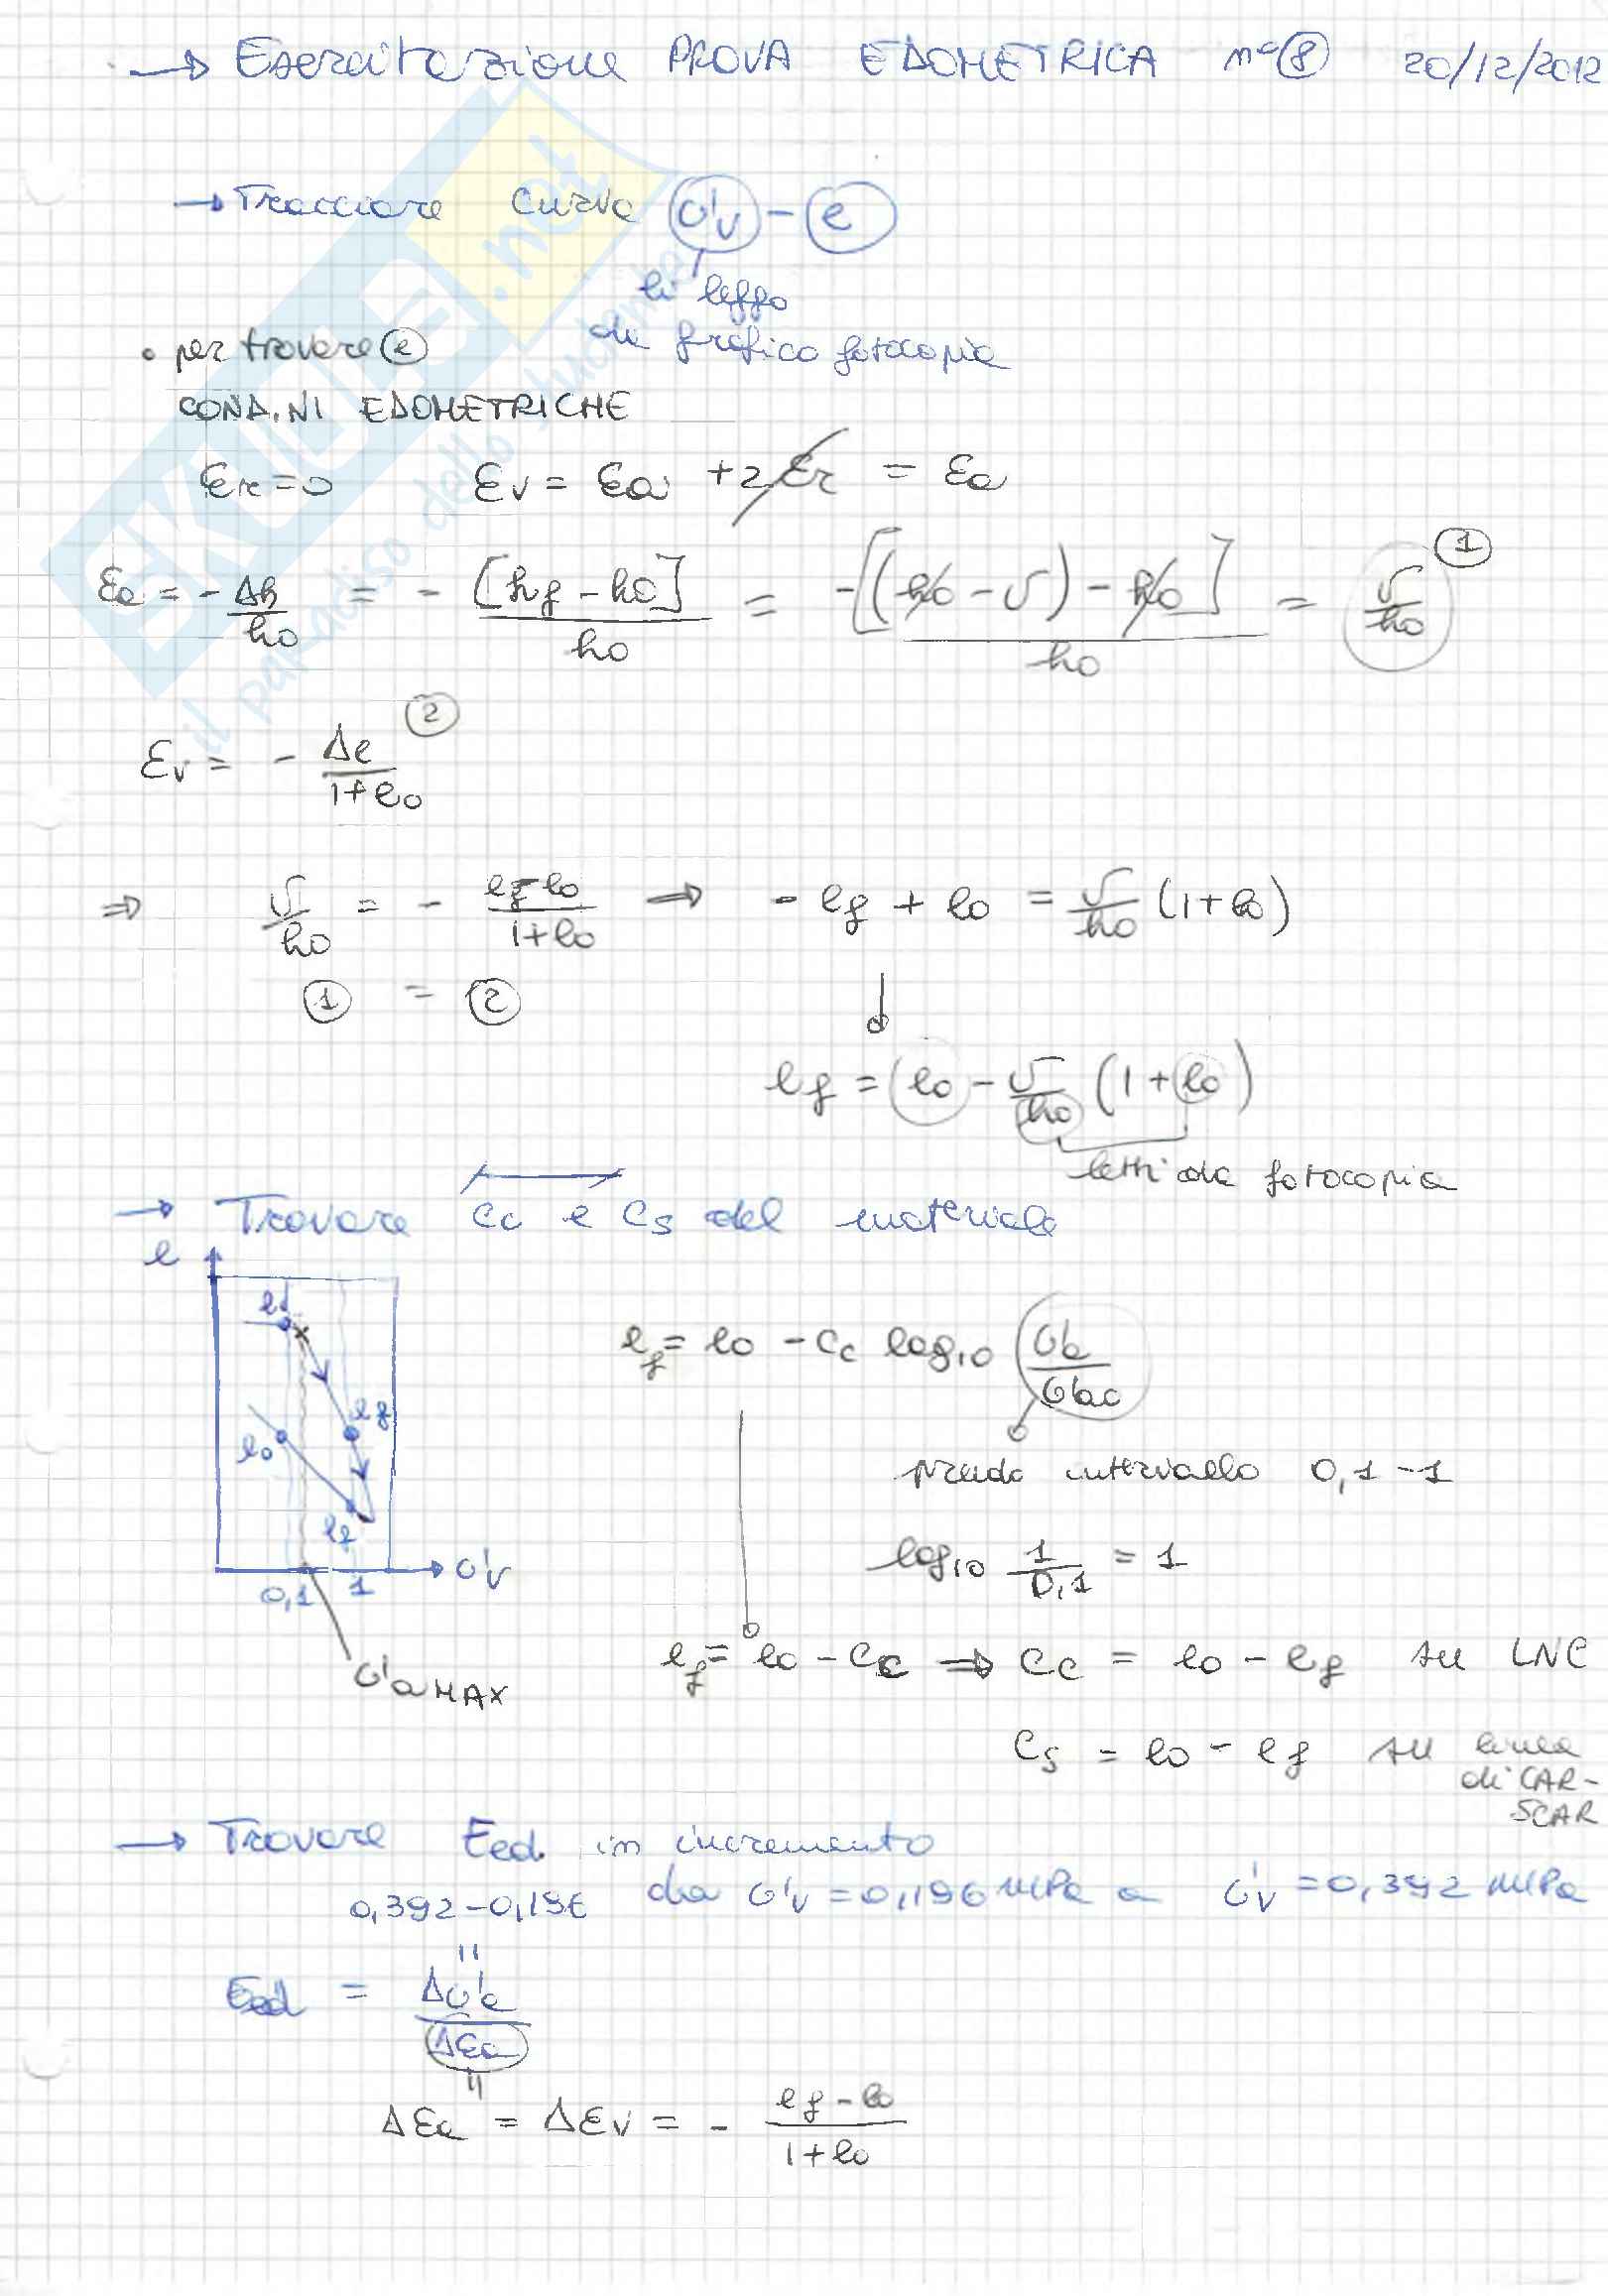 → Esercitazione PROVA EDOMETRICA n° 8 20/12/2012
→ Tracciare curva σ'v - e
li leggo
da grafico fotocopia
• per trovare e
COND.NI EDOMETRICHE
εr = 0 εv = εa + 2εr = εa
εa = - Δh/h0 = - [hf - h0]/h0 = - [(h0 - δ) - h0]/h0 = δ/h0 ①
εv = - Δe/(1+e0) ②
⇒ δ/h0 = - (ef - e0)/(1+e0) ⇒ - ef + e0 = δ/h0 (1+e0)
① = ②
ef = e0 - δ/h0 (1+e0)
letti da fotocopia
→ Trovare Cc e Cs del materiale
e
e0
ef
e0
ef
0,1 1 σ'v
σ'a MAX
ef = e0 - Cc log10 (σ'a/σ'a0)
prendo intervallo 0,1 - 1
log10 1/0,1 = 1
ef = e0 - Cc ⇒ Cc = e0 - ef su LNC
Cs = e0 - ef su linea
di CAR-
SCAR
→ Trovare Eed. in incremento
da σ'v = 0,196 MPa a σ'v = 0,392 MPa
0,392 - 0,196
Eed = Δσ'a/Δεa
Δεa = Δεv = - (ef - e0)/(1+e0)
SKUOLA.net
il paradiso dello studente